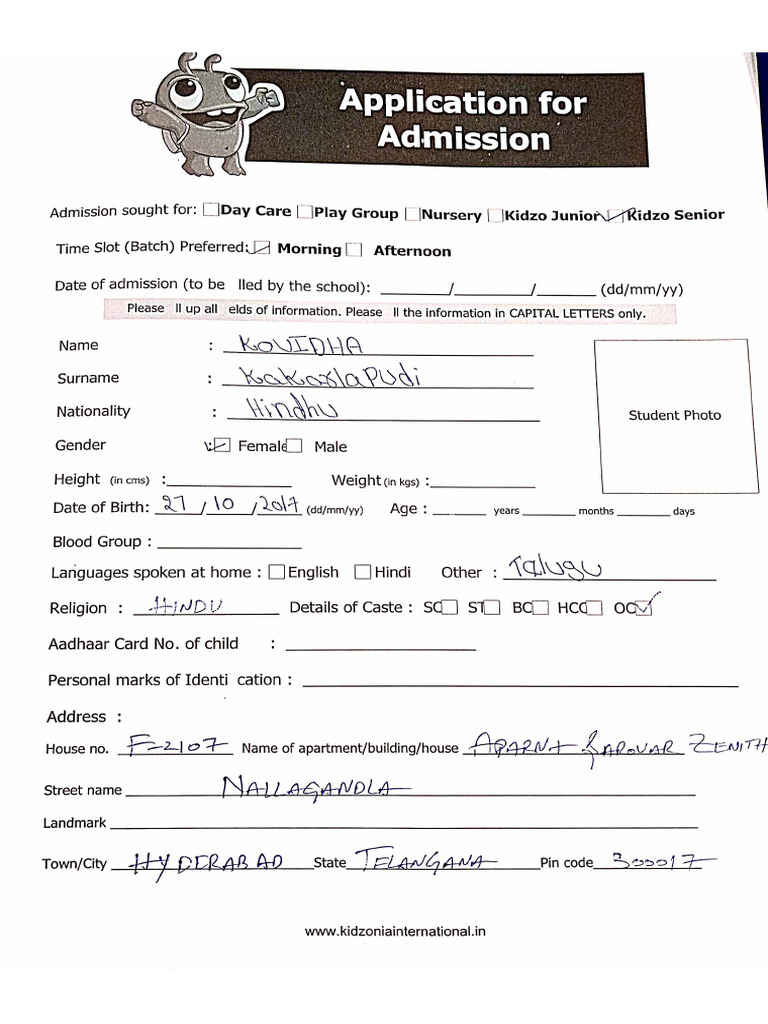 Application for
Admission
Admission sought for: Day Care Play Group Nursery Kidzo Junior Kidzo Senior
Time Slot (Batch) Preferred: Morning Afternoon
Date of admission (to be lled by the school): ______/______/______ (dd/mm/yy)
Please ll up all elds of information. Please ll the information in CAPITAL LETTERS only.
Name : KOVIDHA
Surname : KaKarlaPUdi
Nationality : Hindhu
Student Photo
Gender : Female Male
Height (in cms) : Weight (in kgs) :
Date of Birth: 27/10/2017 (dd/mm/yy) Age : ______ years ______ months ______ days
Blood Group :
Languages spoken at home : English Hindi Other : Talugu
Religion : HINDU Details of Caste : SC ST BC HCC OC
Aadhaar Card No. of child :
Personal marks of Identi cation :
Address :
House no. F-2107 Name of apartment/building/house APARNA SAROVAR ZENITH
Street name NALLAGANDLA
Landmark
Town/City HYDERABAD State TELANGANA Pin code 300017
www.kidzoniainternational.in